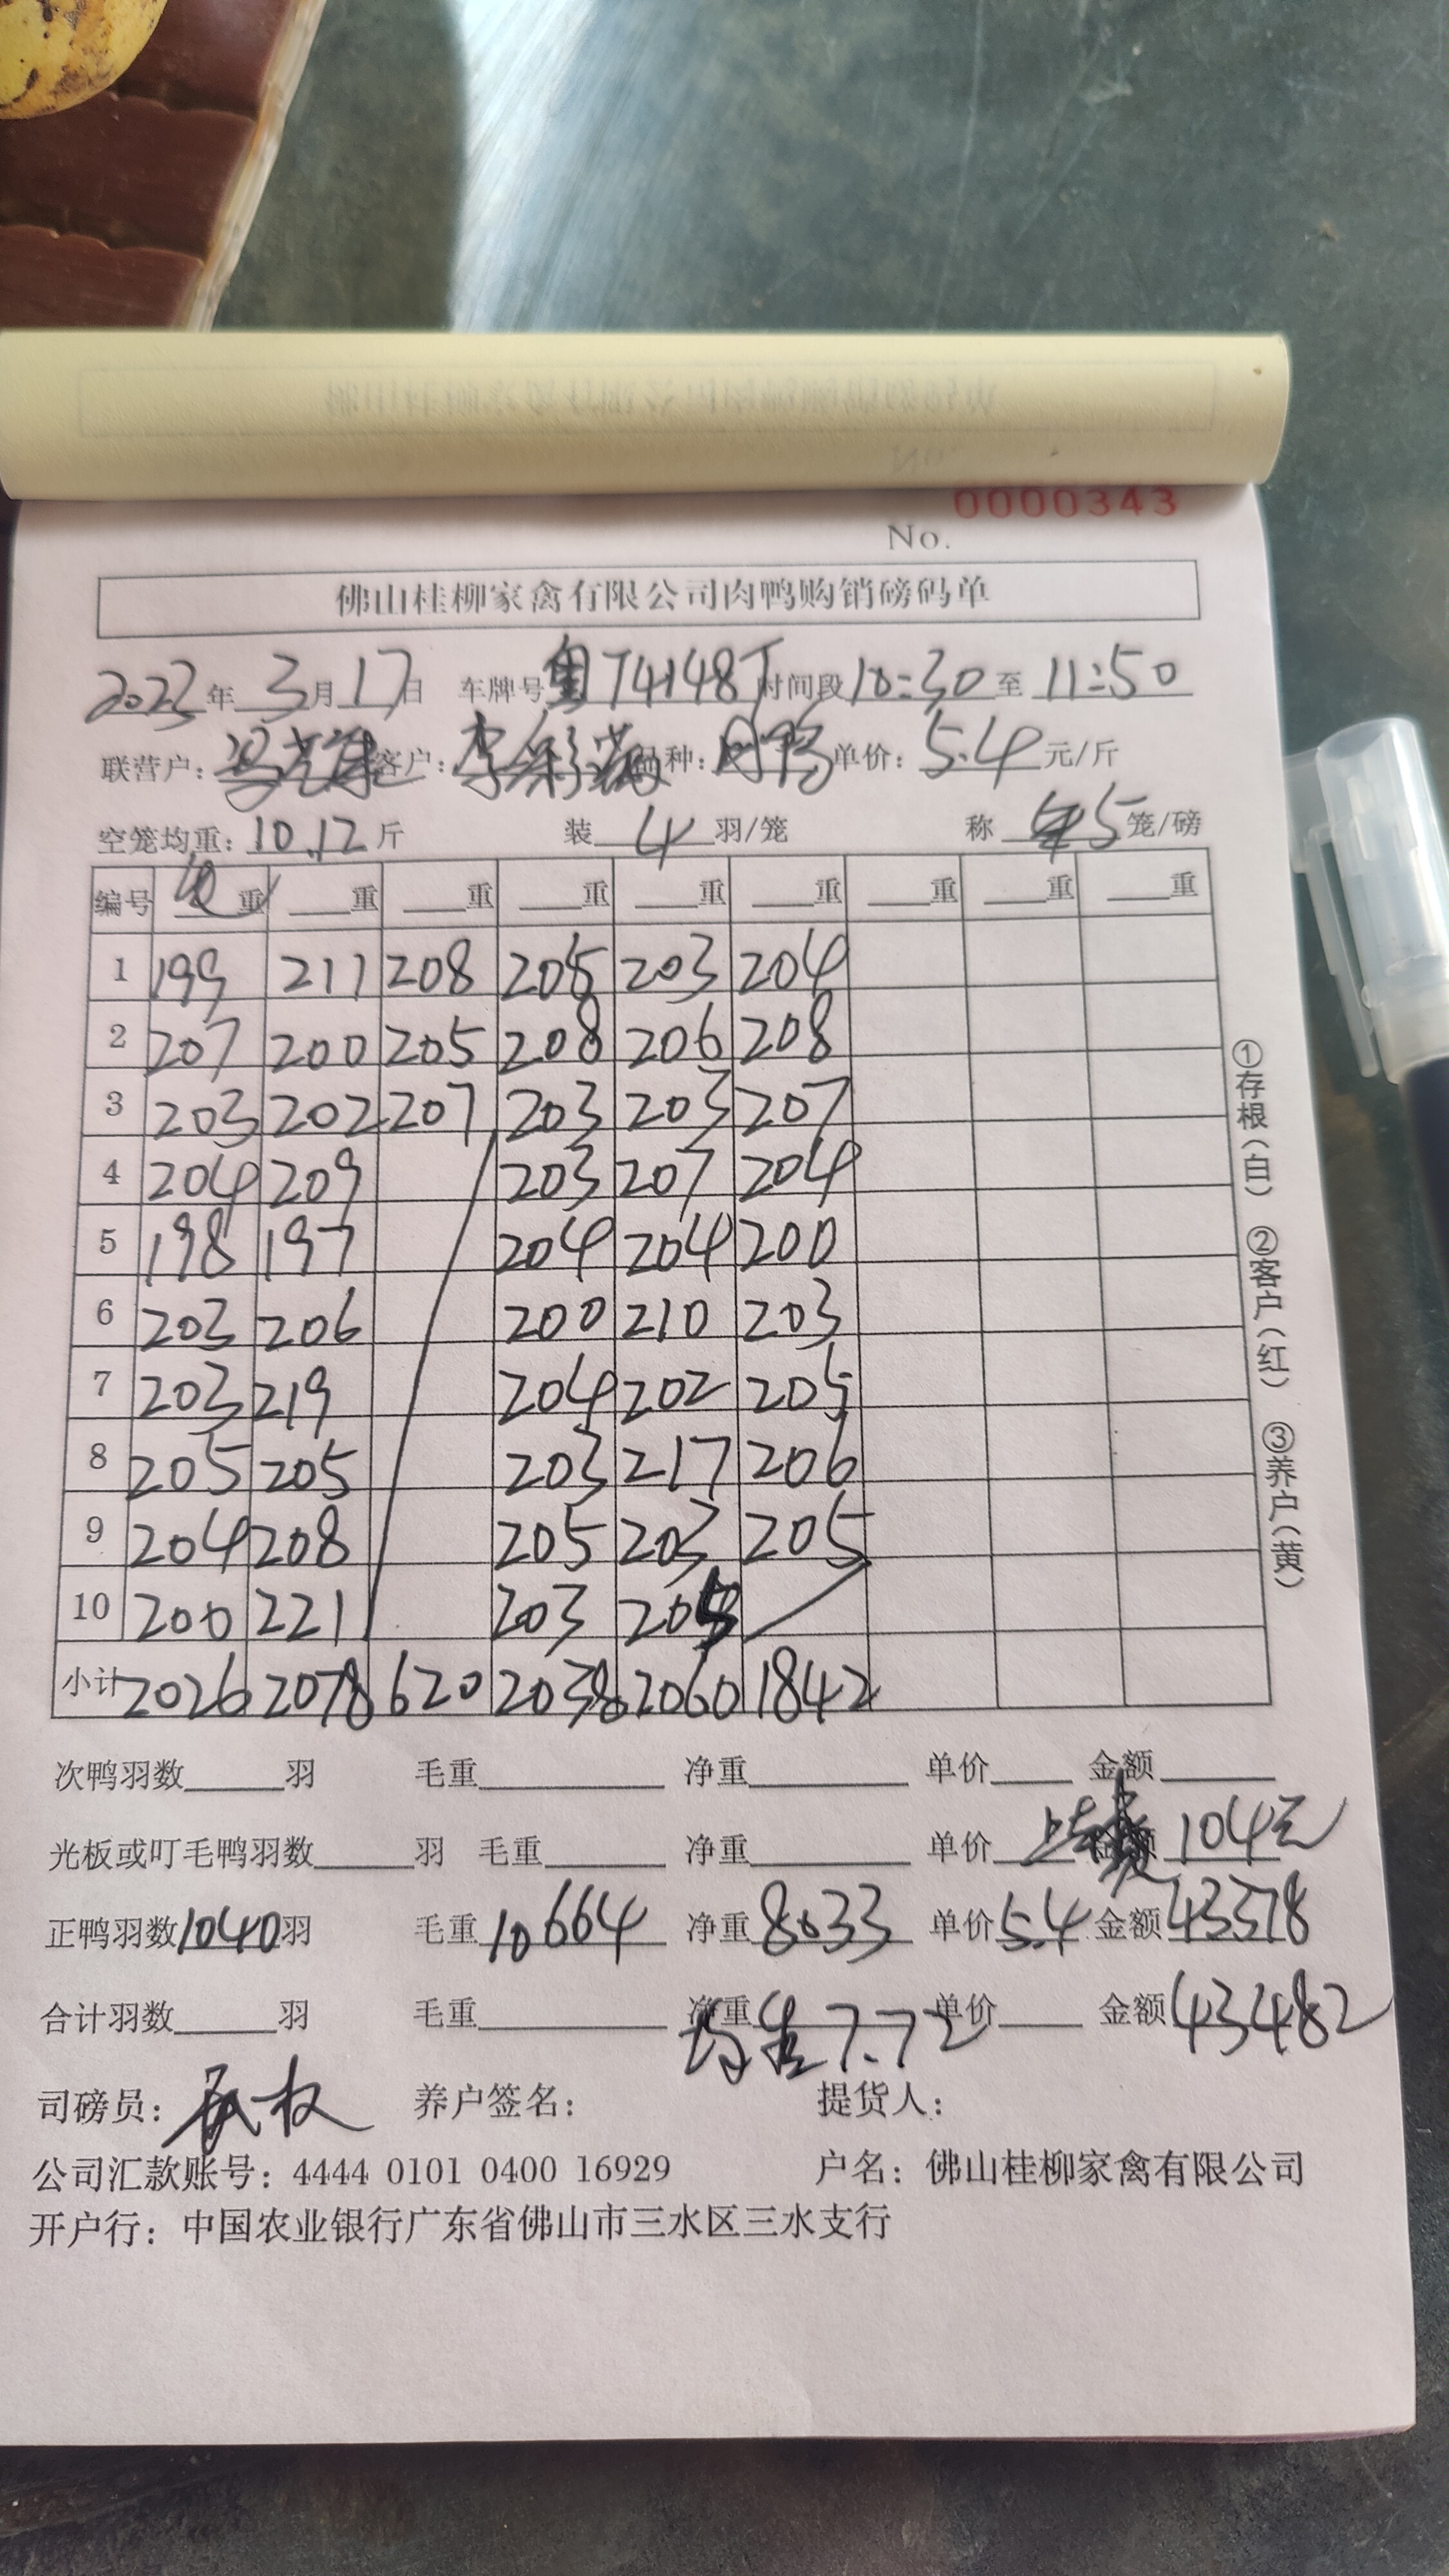 0000343
No.
佛山桂柳家禽有限公司肉鸭购销磅码单
2023年 3月17日 车牌号 粤T4148T 时间段 10:30 至 11:50
联营户: 客户: 李彩 品种: 肉鸭 单价: 5.4 元/斤
空笼均重: 10.12 斤 装 4 羽/笼 称 5 笼/磅
编号 重 重 重 重 重 重 重 重 重
1 199 211 208 205 203 204
2 207 200 205 208 206 208
3 203 202 207 203 203 207
4 204 209 203 207 204
5 198 197 204 204 200
6 203 206 200 210 203
7 203 219 204 202 205
8 205 205 203 217 206
9 204 208 205 203 205
10 200 221 203 205
小计 2026 2078 620 2038 2060 1842
①存根(白) ②客户(红) ③养户(黄)
次鸭羽数 羽 毛重 净重 单价 金额
光板或叮毛鸭羽数 羽 毛重 净重 单价 金额 104元
正鸭羽数 1040 羽 毛重 10664 净重 8033 单价 5.4 金额 43378
合计羽数 羽 毛重 净重 7.72 单价 金额 43482
司磅员: 养户签名: 提货人:
公司汇款账号: 4444 0101 0400 16929 户名: 佛山桂柳家禽有限公司
开户行: 中国农业银行广东省佛山市三水区三水支行